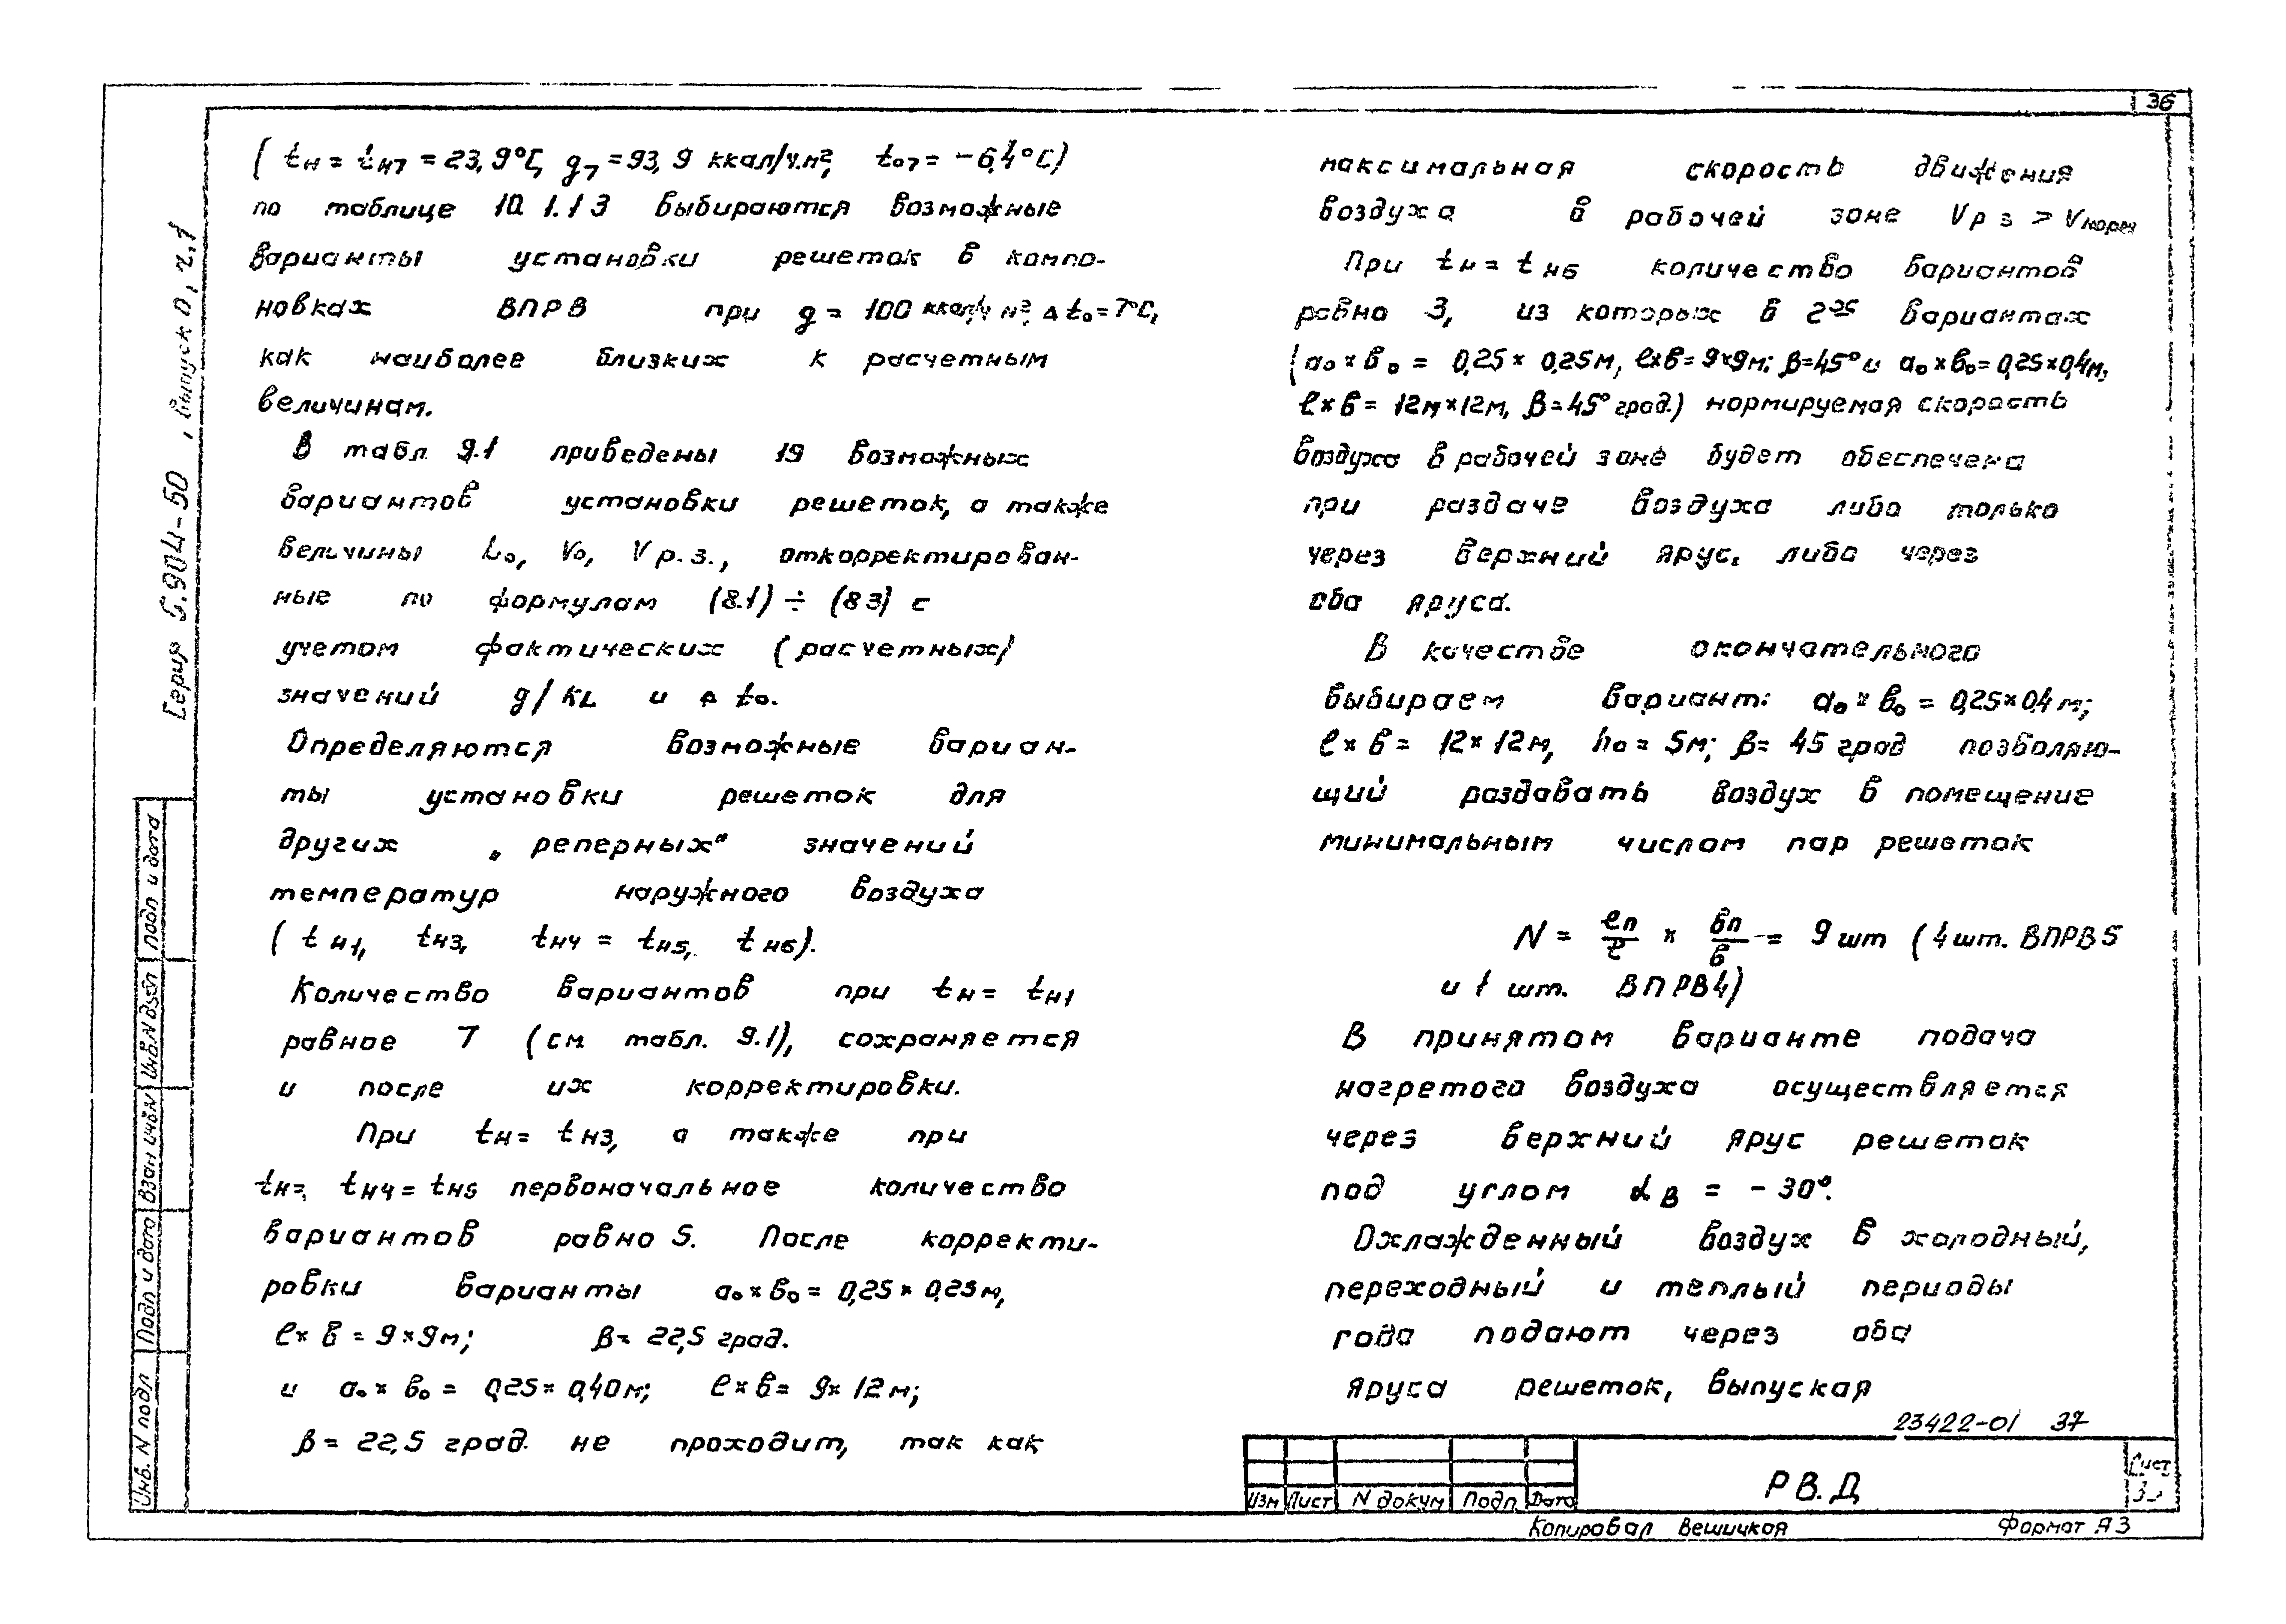 36
( tн = tн7 = 23,9°С, g7 = 93,9 ккал/ч.м², to7 = -6,4°С)
по таблице 10.1.13 выбираются возможные
варианты установки решеток в компо-
новках ВПРВ при g = 100 ккал/ч м², Δto=7°С,
как наиболее близких к расчетным
величинам.
В табл. 9.1 приведены 19 возможных
вариантов установки решеток, а также
величины Lo, Vo, Vр.з., откорректирован-
ные по формулам (8.1) ÷ (8.3) с
учетом фактических (расчетных)
значений g/KL и Δto.
Определяются возможные вариан-
ты установки решеток для
других „реперных" значений
температур наружного воздуха
( tн1, tн3, tн4 = tн5, tн6).
Количество вариантов при tн = tн1
равное 7 (см. табл. 9.1), сохраняется
и после их корректировки.
При tн = tн3, а также при
tн = tн4 = tн5 первоначальное количество
вариантов равно 5. После корректи-
ровки варианты ao×bo = 0,25×0,25м,
ℓ×b = 9×9м; β= 22,5 град.
и ao×bo = 0,25×0,40м; ℓ×b = 9×12м;
β = 22,5 град. не проходит, так как
максимальная скорость движения
воздуха в рабочей зоне Vр з > Vнорм
При tн = tн6 количество вариантов
равно 3, из которых в 2ух вариантах
(ao×bo = 0,25×0,25м, ℓ×b= 9×9м; β=45° и ao×bo=0,25×0,4м,
ℓ×b= 12м×12м, β=45° град.) нормируемая скорость
воздуха в рабочей зоне будет обеспечена
при раздаче воздуха либо только
через верхний ярус, либо через
оба яруса.
В качестве окончательного
выбираем вариант: ao×bo = 0,25×0,4м;
ℓ×b = 12×12м, ho = 5м; β= 45 град позволяю-
щий раздавать воздух в помещение
минимальным числом пар решеток
N = ℓп/ℓ × bп/b = 9 шт (4 шт. ВПРВ5
и 1 шт. ВПРВ4)
В принятом варианте подача
нагретого воздуха осуществляется
через верхний ярус решеток
под углом αв = -30°.
Охлажденный воздух в холодный,
переходный и теплый периоды
года подают через оба
яруса решеток, выпуская
23422-01 37
Изм Лист N докум Подп Дата
РВ.Д
Лист
Копировал Вешицкая Формат А3
Серия 5.904-50, выпуск 0, ч.1
Подп и дата
Инв.N дубл
Взам инв.N
Подп и дата
Инв. N подл